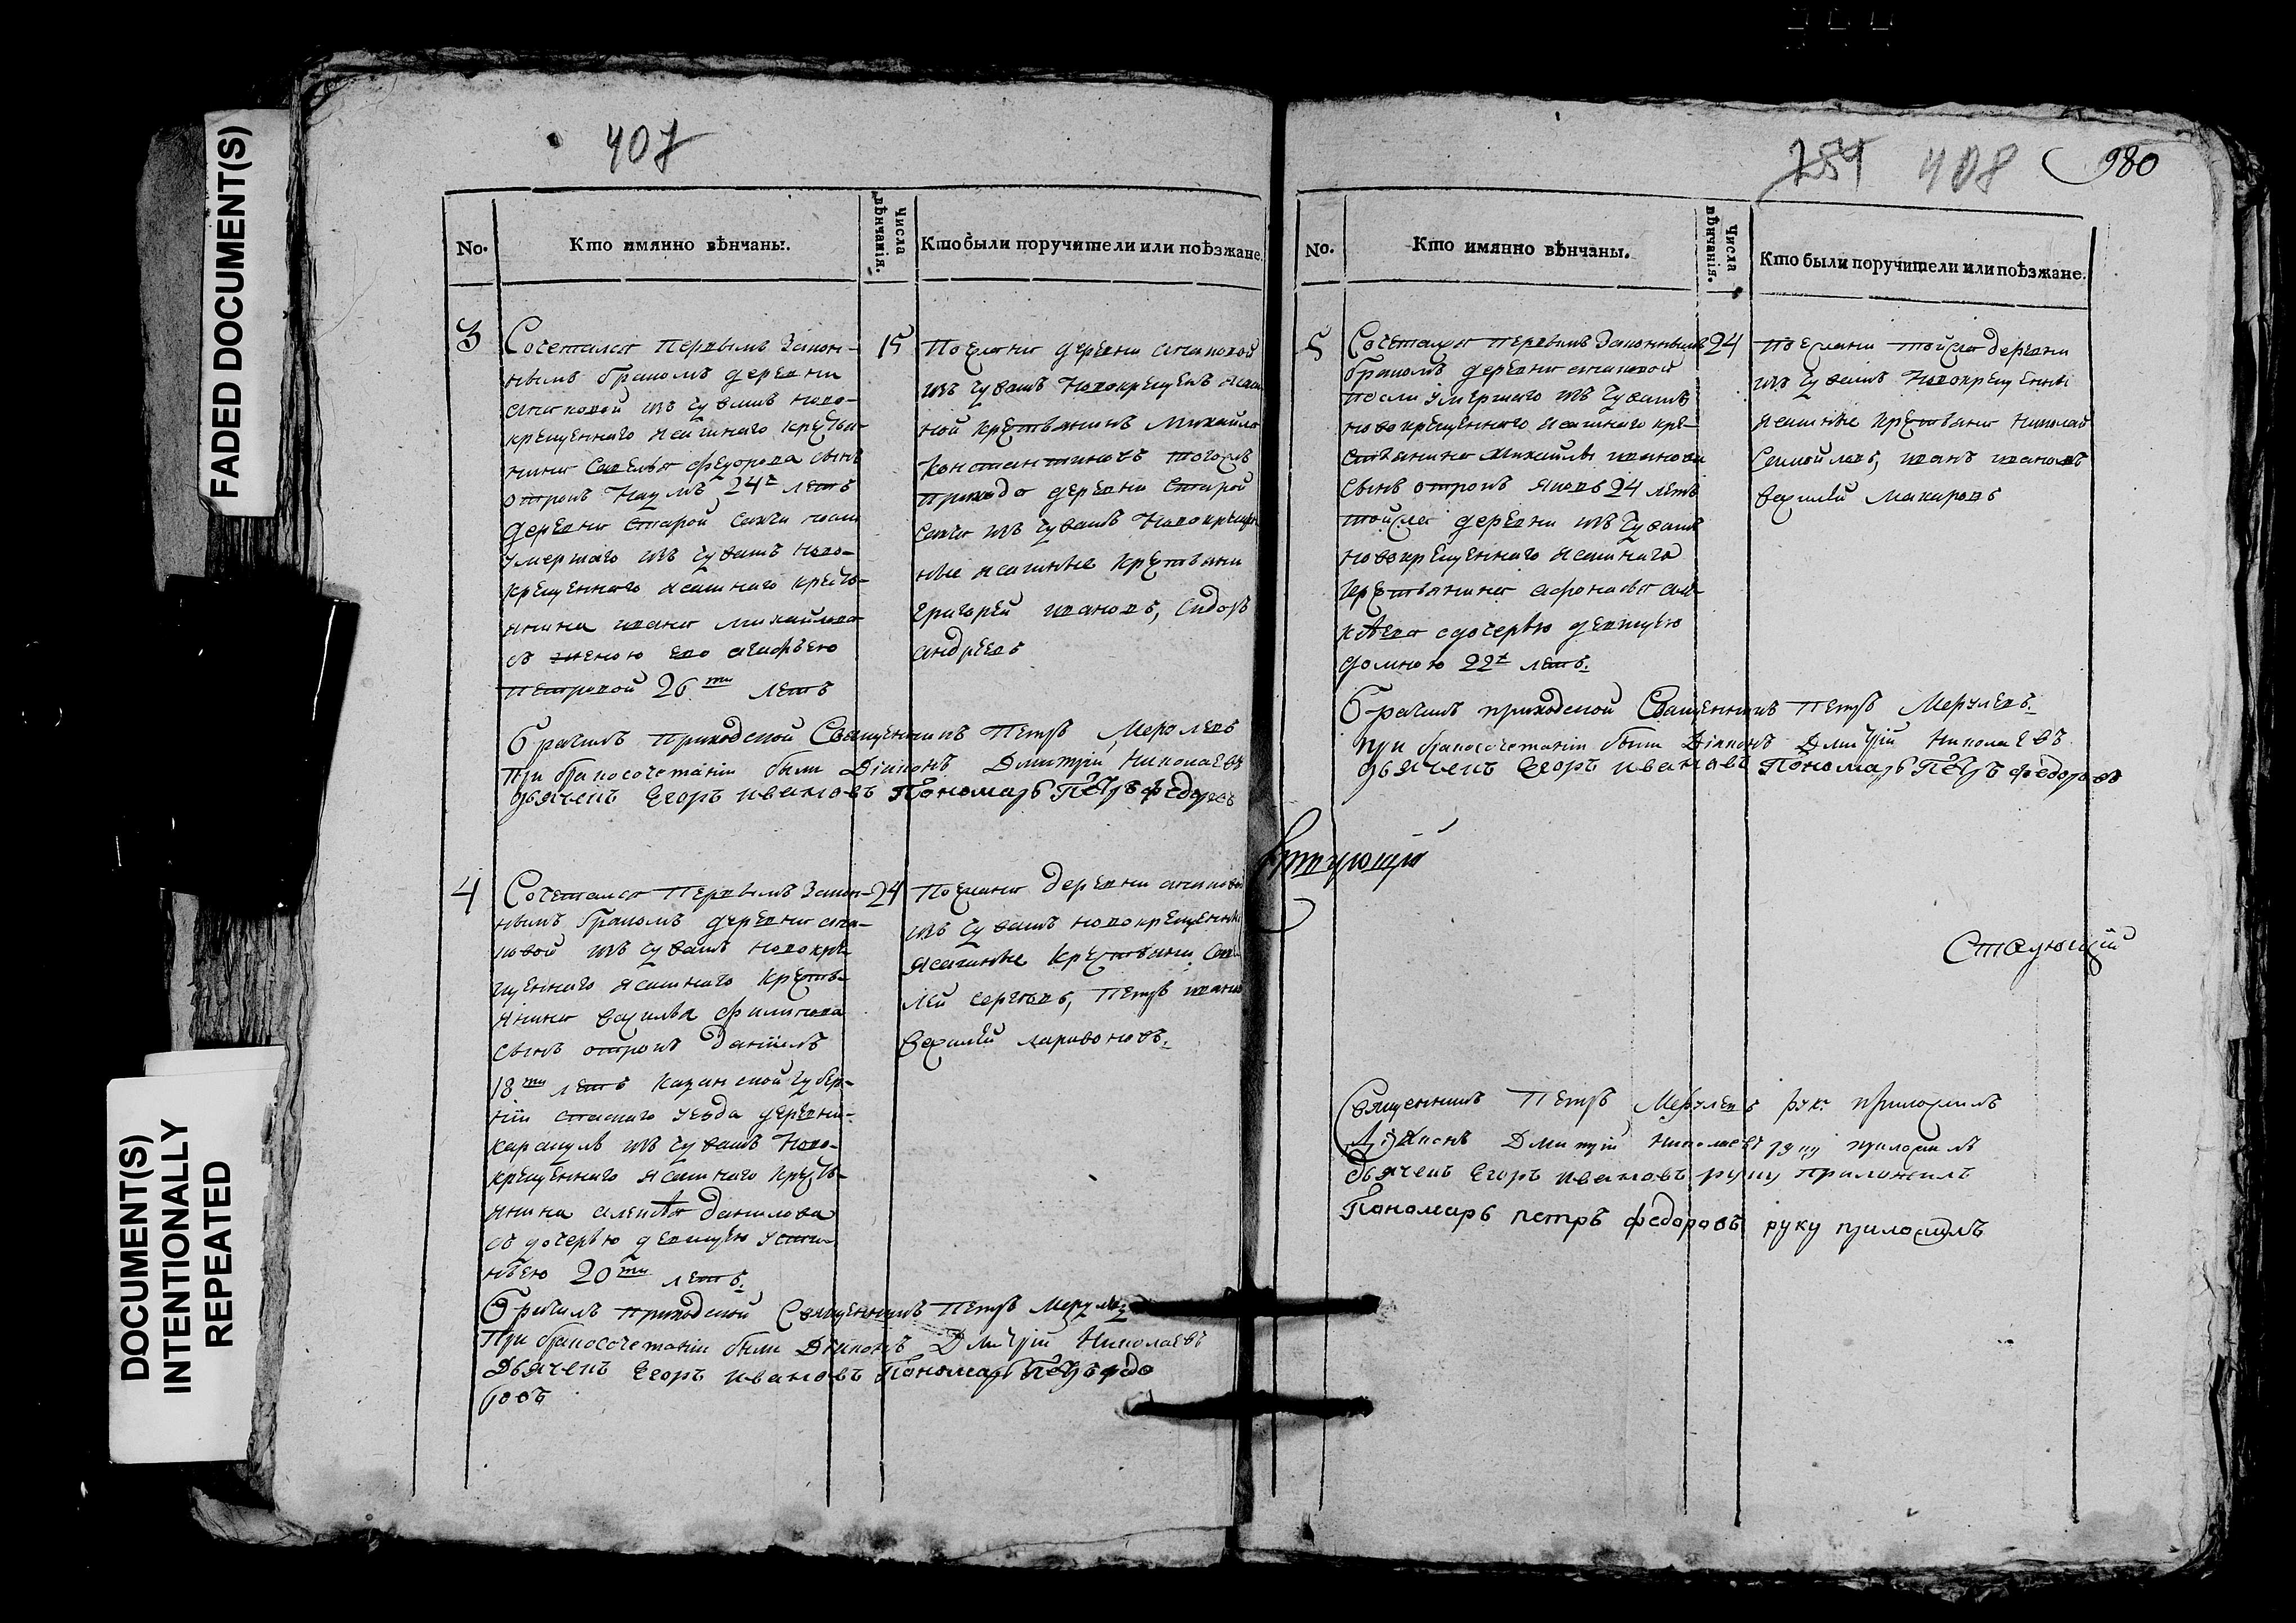 FADED DOCUMENT(S)
DOCUMENT(S)
INTENTIONALLY
REPEATED
407
No.
Кто имянно вѣнчаны.
Числа
вѣнчанія.
Кто были поручители или поѣзжане.
3
15
Сочетался первымъ закон-
нымъ бракомъ деревни
изъ чувашъ ново-
крещеннаго ясашнаго крестья-
нина Савелья Федорова сынъ
отрокъ Наумъ 24х летъ
деревни Старой
умершаго изъ чувашъ ново-
крещеннаго ясашнаго крестъ-
янина Ивана Михайлова
съ женою ево Агафьею
Петровой 26ти летъ
Поезжане деревни
изъ чувашъ новокрещенъ ясаш
ной крестьянинъ Михайла
Константиновъ тогожъ
прихода деревни Старой
изъ чувашъ новокрещен
ные ясашные крестьяни
Григорей Ивановъ, Сидоръ
Андреевъ
Брачилъ приходской Священникъ Петръ
При бракосочетаніи были Діаконъ Дмитрій Николаевъ
дьячекъ Егоръ Ивановъ Пономарь Петръ Федоровъ
4
24
Сочетался первымъ закон-
нымъ бракомъ деревни
изъ чувашъ новокре-
щеннаго ясашнаго крестъ-
янина Василья Филипова
сынъ отрокъ Даніилъ
18ти летъ Казанской губер-
ніи Спаского уезда деревни
изъ чувашъ ново-
крещеннаго ясашнаго крестъ-
янина Алексея Данилова
съ дочерью девицею Усти-
ньею 20ти летъ.
Поезжане деревни
изъ чувашъ новокрещенные
ясашные крестьяни
Сергеевъ, Петръ Ивановъ
Василей Ларивоновъ.
Брачилъ приходской Священникъ Петръ
При бракосочетаніи были Діаконъ Дмитрій Николаевъ
Дьячекъ Егоръ Ивановъ Пономарь Петръ Федо
ровъ
254 408 980
No.
Кто имянно вѣнчаны.
Числа
вѣнчанія.
Кто были поручители или поѣзжане.
5
24
Сочетался первымъ законнымъ
бракомъ деревни
умершаго изъ чувашъ
новокрещеннаго ясашнаго кре-
стьянина Михайлы Иванова
сынъ отрокъ Яковъ 24 летъ
тойже деревни изъ чувашъ
новокрещеннаго ясашнаго
крестьянина Афонасья Але-
ксеева здочерью девицею
Домною 22х летъ.
Поезжани тойже деревни
изъ чувашъ новокрещенны
ясашные крестьяни Николай
Самойловъ, Иванъ Ивановъ
Василей Макаровъ
Брачилъ приходской Священникъ Петръ
При бракосочетаніи были Діаконъ Дмитрій Николаевъ
дьячекъ Егоръ Ивановъ Пономарь Петръ Федоровъ
Священникъ Петръ рук. приложилъ
Діаконъ Дмитрій Николаевъ руку приложилъ
дьячекъ Егоръ Ивановъ руку приложилъ
Пономарь Петръ Федоровъ руку приложилъ